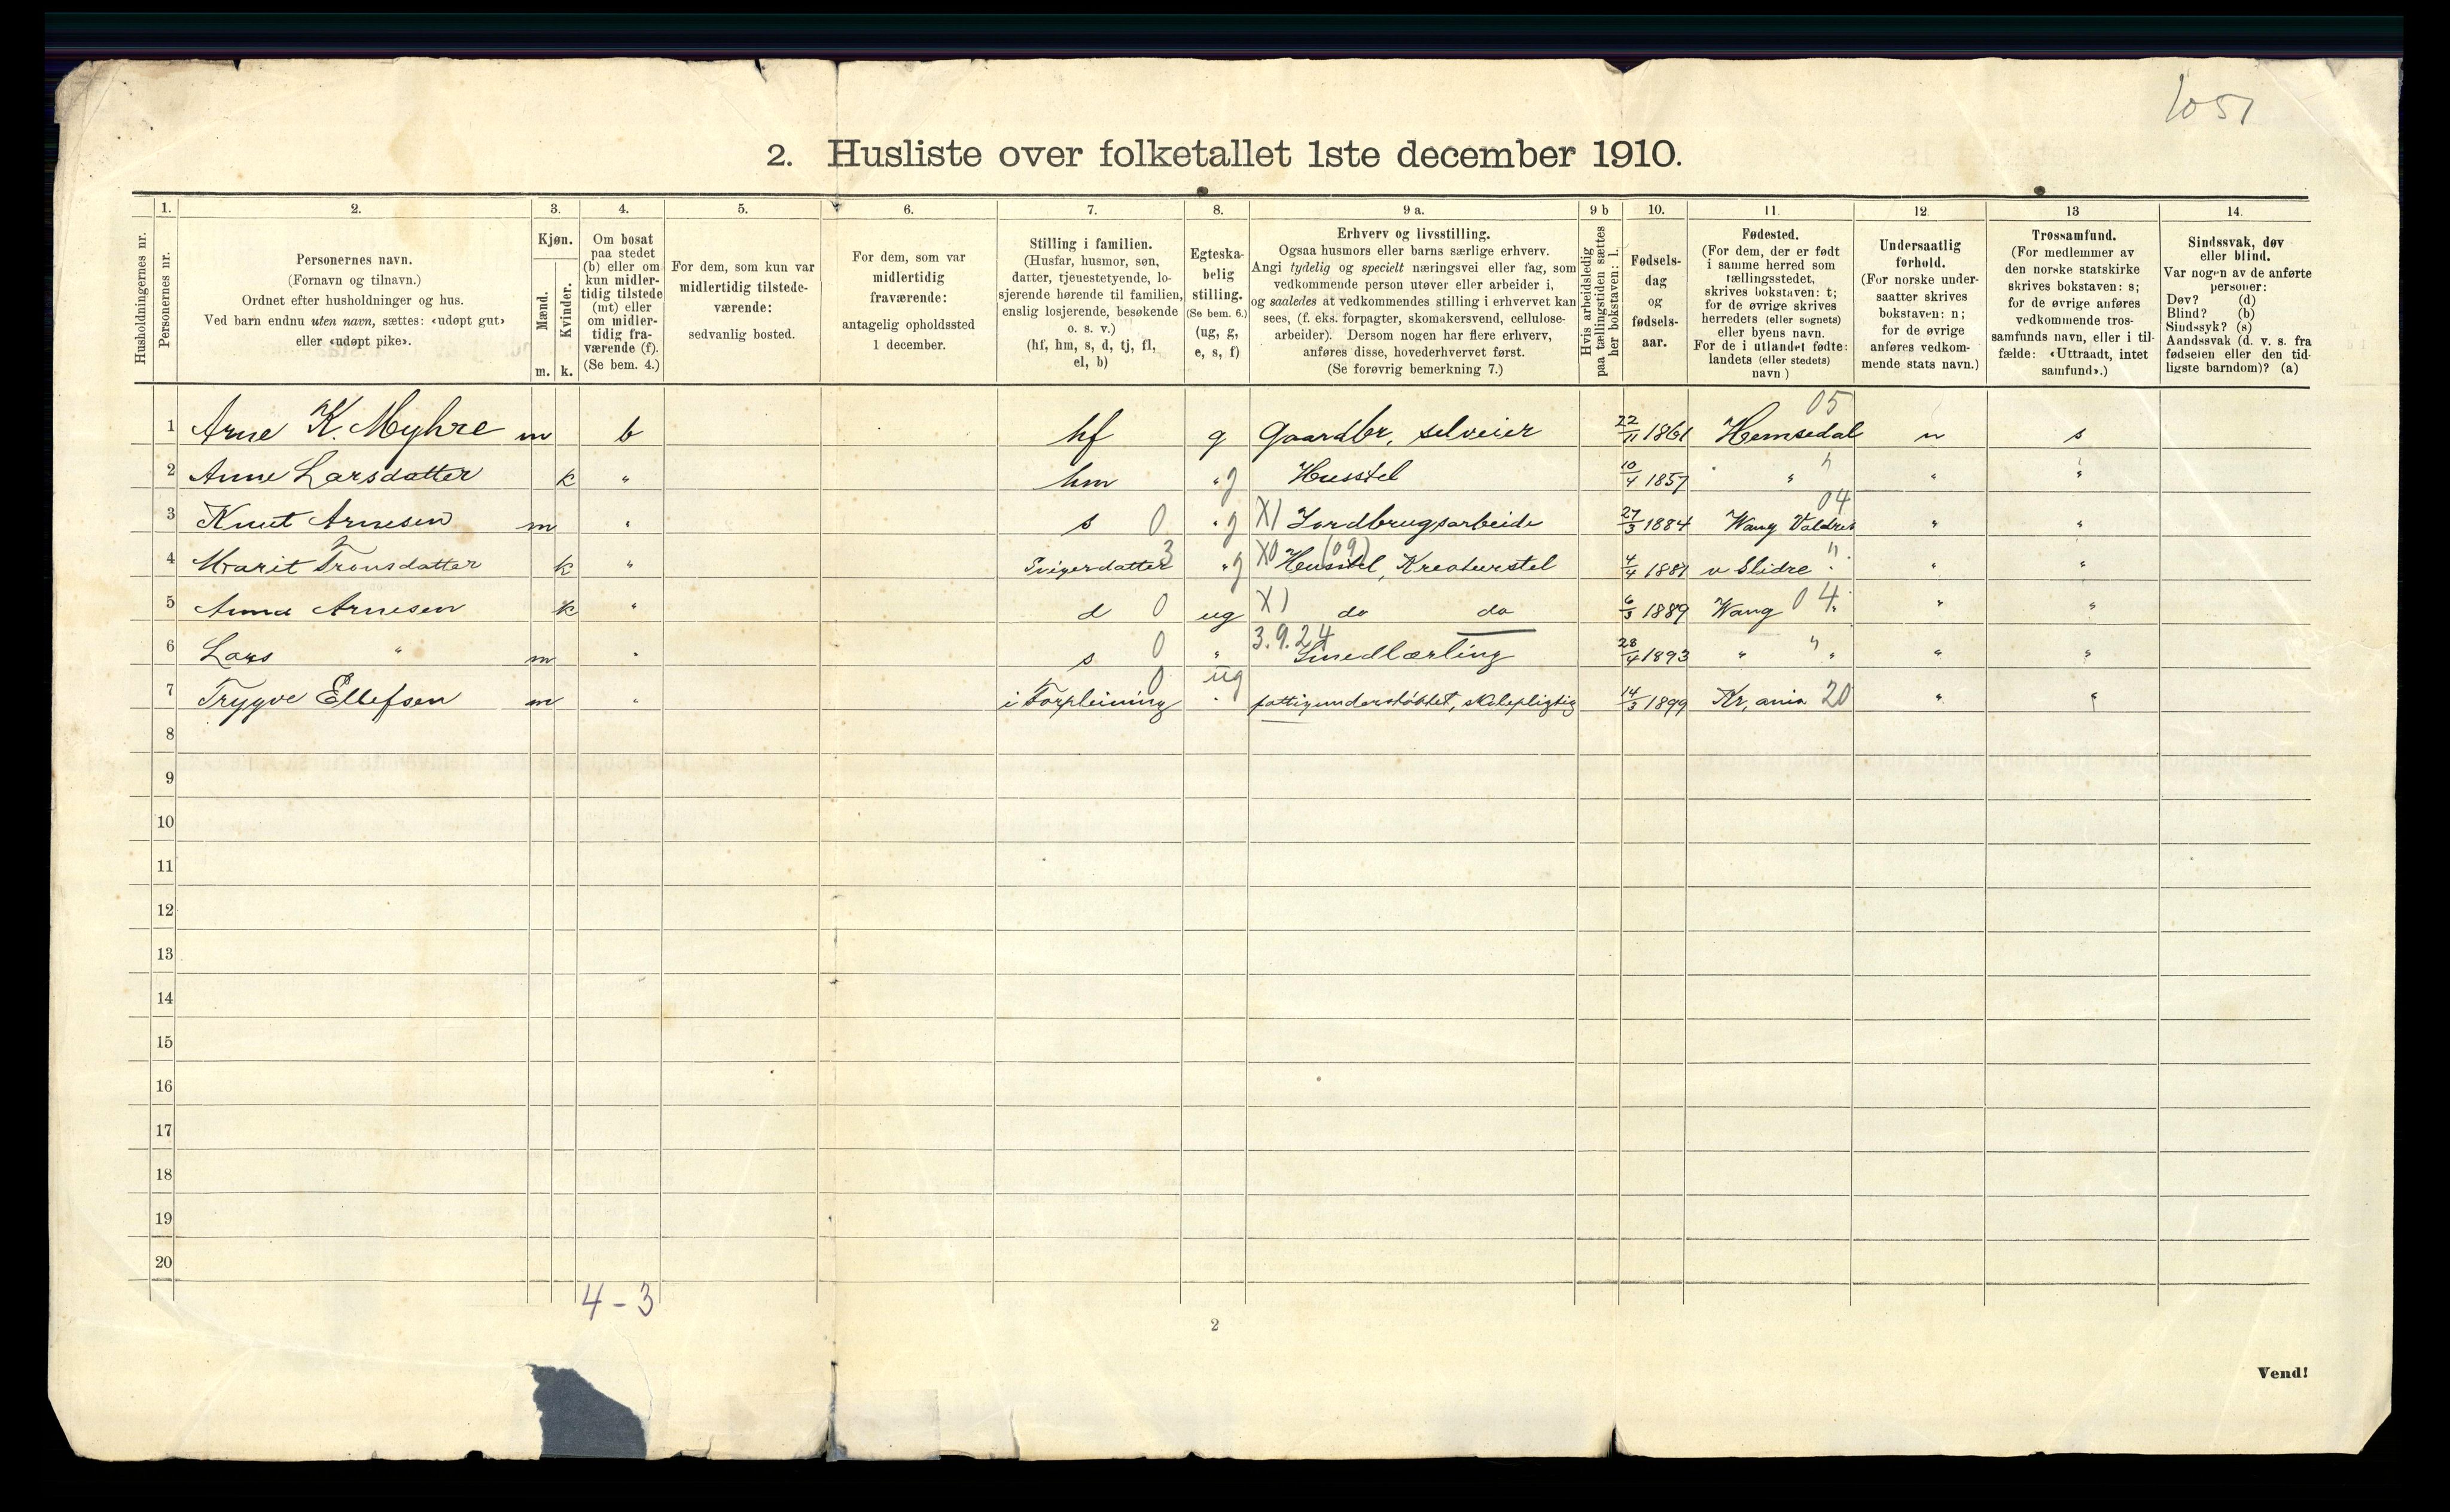 1051
2. Husliste over folketallet 1ste december 1910.
1. 2. 3. 4. 5. 6. 7. 8. 9 a. 9 b 10. 11. 12. 13 14.
Husholdningernes nr.
Personernes nr.
Personernes navn.
(Fornavn og tilnavn.)
Ordnet efter husholdninger og hus.
Ved barn endnu uten navn, sættes: «udøpt gut»
eller «udøpt pike».
Kjøn.
Mænd.
Kvinder.
m. k.
Om bosat
paa stedet
(b) eller om
kun midler-
tidig tilstede
(mt) eller
om midler-
tidig fra-
værende (f).
(Se bem. 4.)
For dem, som kun var
midlertidig tilstede-
værende:
sedvanlig bosted.
For dem, som var
midlertidig
fraværende:
antagelig opholdssted
1 december.
Stilling i familien.
(Husfar, husmor, søn,
datter, tjenestetyende, lo-
sjerende hørende til familien,
enslig losjerende, besøkende
o. s. v.)
(hf, hm, s, d, tj, fl,
el, b)
Egteska-
belig
stilling.
(Se bem. 6.)
(ug, g,
e, s, f)
Erhverv og livsstilling.
Ogsaa husmors eller barns særlige erhverv.
Angi tydelig og specielt næringsvei eller fag, som
vedkommende person utøver eller arbeider i,
og saaledes at vedkommendes stilling i erhvervet kan
sees, (f. eks. forpagter, skomakersvend, cellulose-
arbeider). Dersom nogen har flere erhverv,
anføres disse, hovederhvervet først.
(Se forøvrig bemerkning 7.)
Hvis arbeidsledig
paa tællingstiden sættes
her bokstaven: l.
Fødsels-
dag
og
fødsels-
aar.
Fødested.
(For dem, der er født
i samme herred som
tællingsstedet,
skrives bokstaven: t;
for de øvrige skrives
herredets (eller sognets)
eller byens navn.
For de i utlandet fødte:
landets (eller stedets)
navn.)
Undersaatlig
forhold.
(For norske under-
saatter skrives
bokstaven: n;
for de øvrige
anføres vedkom-
mende stats navn.)
Trossamfund.
(For medlemmer av
den norske statskirke
skrives bokstaven: s;
for de øvrige anføres
vedkommende tros-
samfunds navn, eller i til-
fælde: «Uttraadt, intet
samfund».)
Sindssvak, døv
eller blind.
Var nogen av de anførte
personer:
Døv? (d)
Blind? (b)
Sindssyk? (s)
Aandssvak (d. v. s. fra
fødselen eller den tid-
ligste barndom)? (a)
1 Arne K. Myhre m b hf g Gaardbr, selveier 22/11 1861 Hemsedal 05 n s
2 Anne Larsdatter k " hm " g Husstel 10/4 1857 " " " "
3 Knut Arnesen m " s 0 " g X1 Jordbrugsarbeide 27/3 1884 Wang Valdres 04 " "
4 Marit Tronsdatter k " Svigerdatter 3 " g X0 (09) Husstel, Kreaturstel 4/4 1881 v Slidre " " "
5 Anna Arnesen k " d 0 ug X1 do do 6/3 1889 Wang 04 " "
6 Lars " m " s 0 " 3.9.24 Smedlærling 28/4 1893 " " " "
7 Trygve Ellefsen m " i Forpleining 0 ug " fattigunderstøttet, skolepligtig 14/3 1899 Kr, ania 20 " "
8
9
10
11
12
13
14
15
16
17
18
19
20
4 - 3
2
Vend!